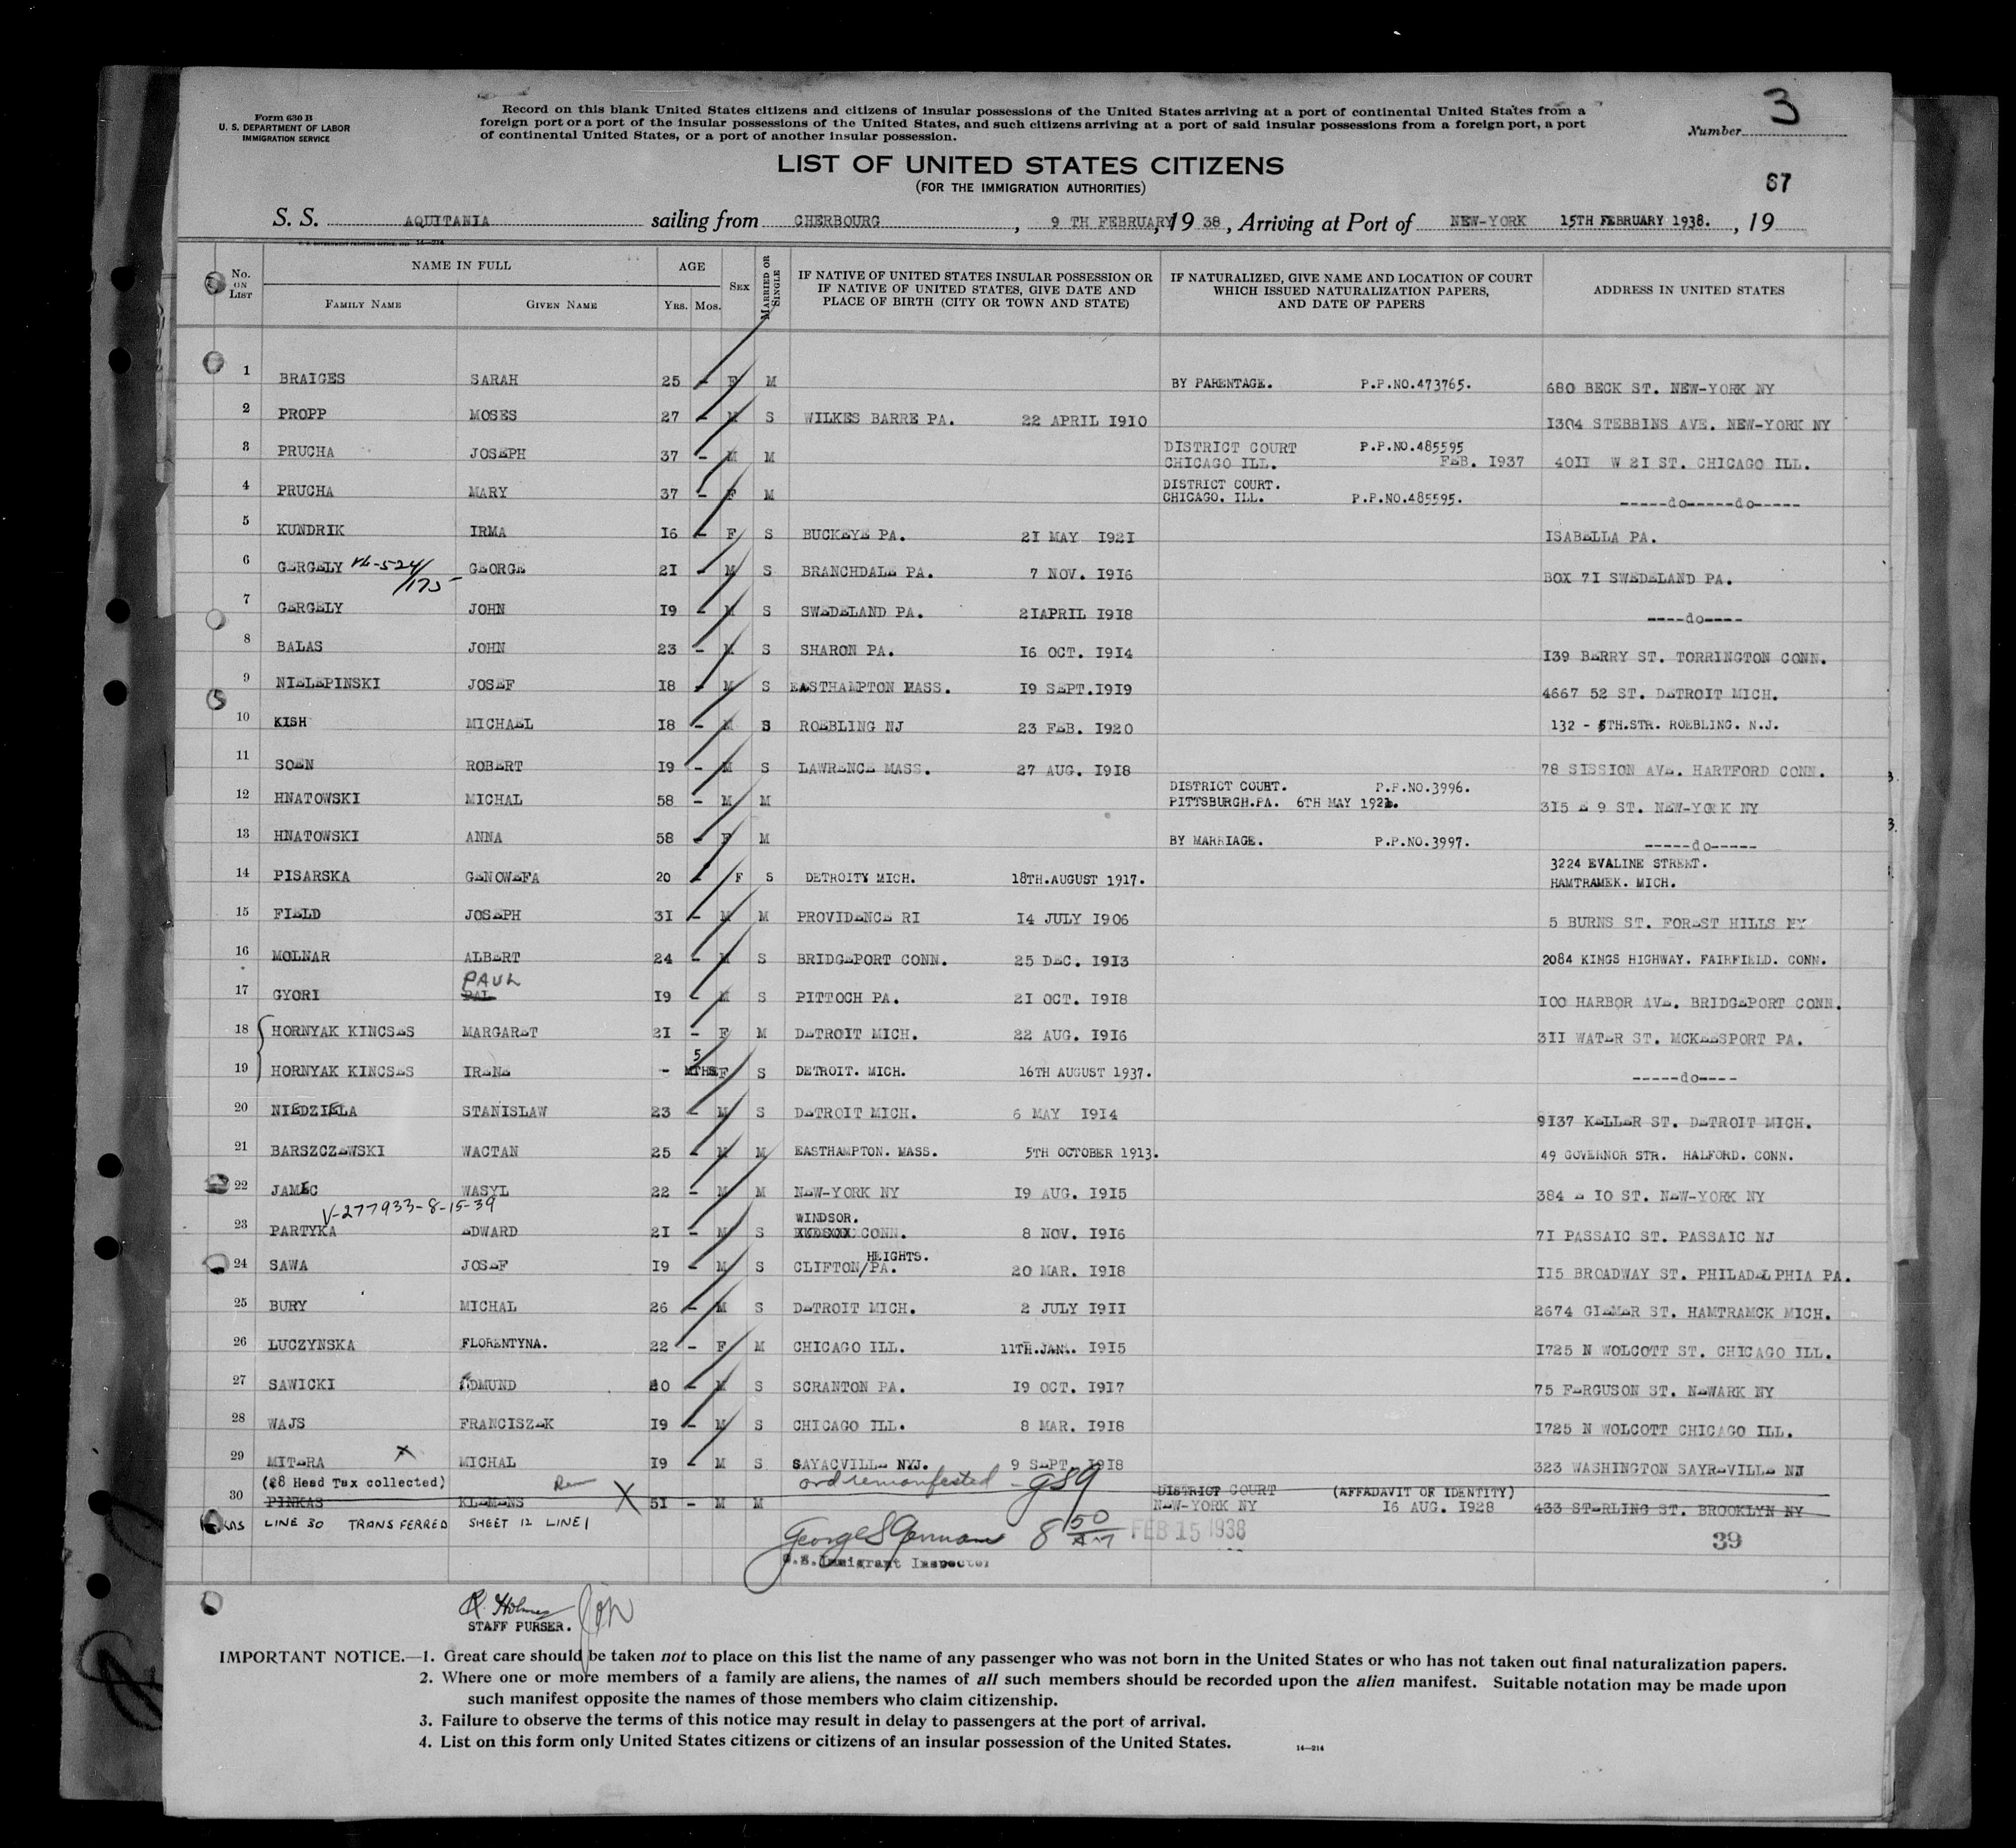 3
Form 630 B
U. S. DEPARTMENT OF LABOR
IMMIGRATION SERVICE
Record on this blank United States citizens and citizens of insular possessions of the United States arriving at a port of continental United States from a
foreign port or a port of the insular possessions of the United States, and such citizens arriving at a port of said insular possessions from a foreign port, a port
of continental United States, or a port of another insular possession.
Number
LIST OF UNITED STATES CITIZENS
(FOR THE IMMIGRATION AUTHORITIES)
67
S. S. AQUITANIA sailing from CHERBOURG, 9 TH FEBRUARY, 19 38, Arriving at Port of NEW-YORK 15TH FEBRUARY 1938., 19
No. ON LIST NAME IN FULL FAMILY NAME GIVEN NAME AGE YRS. MOS. SEX MARRIED OR SINGLE IF NATIVE OF UNITED STATES INSULAR POSSESSION OR IF NATIVE OF UNITED STATES, GIVE DATE AND PLACE OF BIRTH (CITY OR TOWN AND STATE) IF NATURALIZED, GIVE NAME AND LOCATION OF COURT WHICH ISSUED NATURALIZATION PAPERS, AND DATE OF PAPERS ADDRESS IN UNITED STATES
1 BRAIGES SARAH 25 - F M BY PARENTAGE. P.P.NO.473765. 680 BECK ST. NEW-YORK NY
2 PROPP MOSES 27 - M S WILKES BARRE PA. 22 APRIL I9I0 I304 STEBBINS AVE. NEW-YORK NY
3 PRUCHA JOSEPH 37 - M M DISTRICT COURT P.P.NO.485595 CHICAGO ILL. FEB. I937 40II W 2I ST. CHICAGO ILL.
4 PRUCHA MARY 37 - F M DISTRICT COURT. CHICAGO. ILL. P.P.NO.485595. -----do-----do-----
5 KUNDRIK IRMA I6 - F S BUCKEYE PA. 2I MAY I92I ISABELLA PA.
6 GERGELY GEORGE 2I - M S BRANCHDALE PA. 7 NOV. I9I6 BOX 7I SWEDELAND PA.
7 GERGELY JOHN I9 - M S SWEDELAND PA. 2IAPRIL I9I8 ----do----
8 BALAS JOHN 23 - M S SHARON PA. I6 OCT. I9I4 I39 BERRY ST. TORRINGTON CONN.
9 NIELEPINSKI JOSEF I8 - M S EASTHAMPTON MASS. I9 SEPT.I9I9 4667 52 ST. DETROIT MICH.
10 KISH MICHAEL I8 - M S ROEBLING NJ 23 FEB. I920 132 - 5TH.STR. ROEBLING. N.J.
11 SOEN ROBERT I9 - M S LAWRENCE MASS. 27 AUG. I9I8 78 SISSION AVE. HARTFORD CONN.
12 HNATOWSKI MICHAL 58 - M M DISTRICT COURT. P.P.NO.3996. PITTSBURGH.PA. 6TH MAY 1921. 3I5 E 9 ST. NEW-YORK NY
13 HNATOWSKI ANNA 58 - F M BY MARRIAGE. P.P.NO.3997. -----do-----
14 PISARSKA GENOWEFA 20 - F S DETROITY MICH. 18TH.AUGUST 1917. 3224 EVALINE STREET. HAMTRAMEK. MICH.
15 FIELD JOSEPH 3I - M M PROVIDENCE RI I4 JULY I906 5 BURNS ST. FOREST HILLS NY
16 MOLNAR ALBERT 24 - M S BRIDGEPORT CONN. 25 DEC. I9I3 2084 KINGS HIGHWAY. FAIRFIELD. CONN.
PAUL
17 GYORI PAL I9 - M S PITTOCH PA. 2I OCT. I9I8 I00 HARBOR AVE. BRIDGEPORT CONN.
18 HORNYAK KINCSES MARGARET 2I - F M DETROIT MICH. 22 AUG. I9I6 3II WATER ST. MCKEESPORT PA.
19 HORNYAK KINCSES IRENE - 5 MTHS F S DETROIT. MICH. 16TH AUGUST 1937. -----do----
20 NIEDZIELA STANISLAW 23 - M S DETROIT MICH. 6 MAY I9I4 9I37 KELLER ST. DETROIT MICH.
21 BARSZCZEWSKI WACTAN 25 - M M EASTHAMPTON. MASS. 5TH OCTOBER 1913. 49 GOVERNOR STR. HALFORD. CONN.
22 JAMEC WASYL 22 - M M NEW-YORK NY I9 AUG. I9I5 384 E I0 ST. NEW-YORK NY
V-277933-8-15-39
23 PARTYKA EDWARD 2I - M S WINDSOR. CONN. 8 NOV. I9I6 7I PASSAIC ST. PASSAIC NJ
24 SAWA JOSEF I9 - M S CLIFTON/HEIGHTS. PA. 20 MAR. I9I8 II5 BROADWAY ST. PHILADELPHIA PA.
25 BURY MICHAL 26 - M S DETROIT MICH. 2 JULY I9II 2674 GIEMER ST. HAMTRAMCK MICH.
26 LUCZYNSKA FLORENTYNA. 22 - F M CHICAGO ILL. 11TH.JAN. I9I5 I725 N WOLCOTT ST. CHICAGO ILL.
27 SAWICKI EDMUND 20 - M S SCRANTON PA. I9 OCT. I9I7 75 FERGUSON ST. NEWARK NY
28 WAJS FRANCISZEK I9 - M S CHICAGO ILL. 8 MAR. I9I8 I725 N WOLCOTT CHICAGO ILL.
29 MITERA X MICHAL I9 - M S SAYACVILLE NYJ. 9 SEPT. I9I8 323 WASHINGTON SAYREVILLE NJ
($8 Head Tax collected) X ord remanifested - GSG
30 PINKAS KLEMENS 5I - M M DISTRICT COURT (AFFADAVIT OF IDENTITY) NEW-YORK NY I6 AUG. I928 433 STERLING ST. BROOKLYN NY
LINE 30 TRANSFERRED SHEET 12 LINE 1
George S German 8 50 AM FEB 15 1938 39
U.S. Immigrant Inspector
R. Holmes
STAFF PURSER.
IMPORTANT NOTICE.—1. Great care should be taken not to place on this list the name of any passenger who was not born in the United States or who has not taken out final naturalization papers.
2. Where one or more members of a family are aliens, the names of all such members should be recorded upon the alien manifest. Suitable notation may be made upon
such manifest opposite the names of those members who claim citizenship.
3. Failure to observe the terms of this notice may result in delay to passengers at the port of arrival.
4. List on this form only United States citizens or citizens of an insular possession of the United States.
14—214